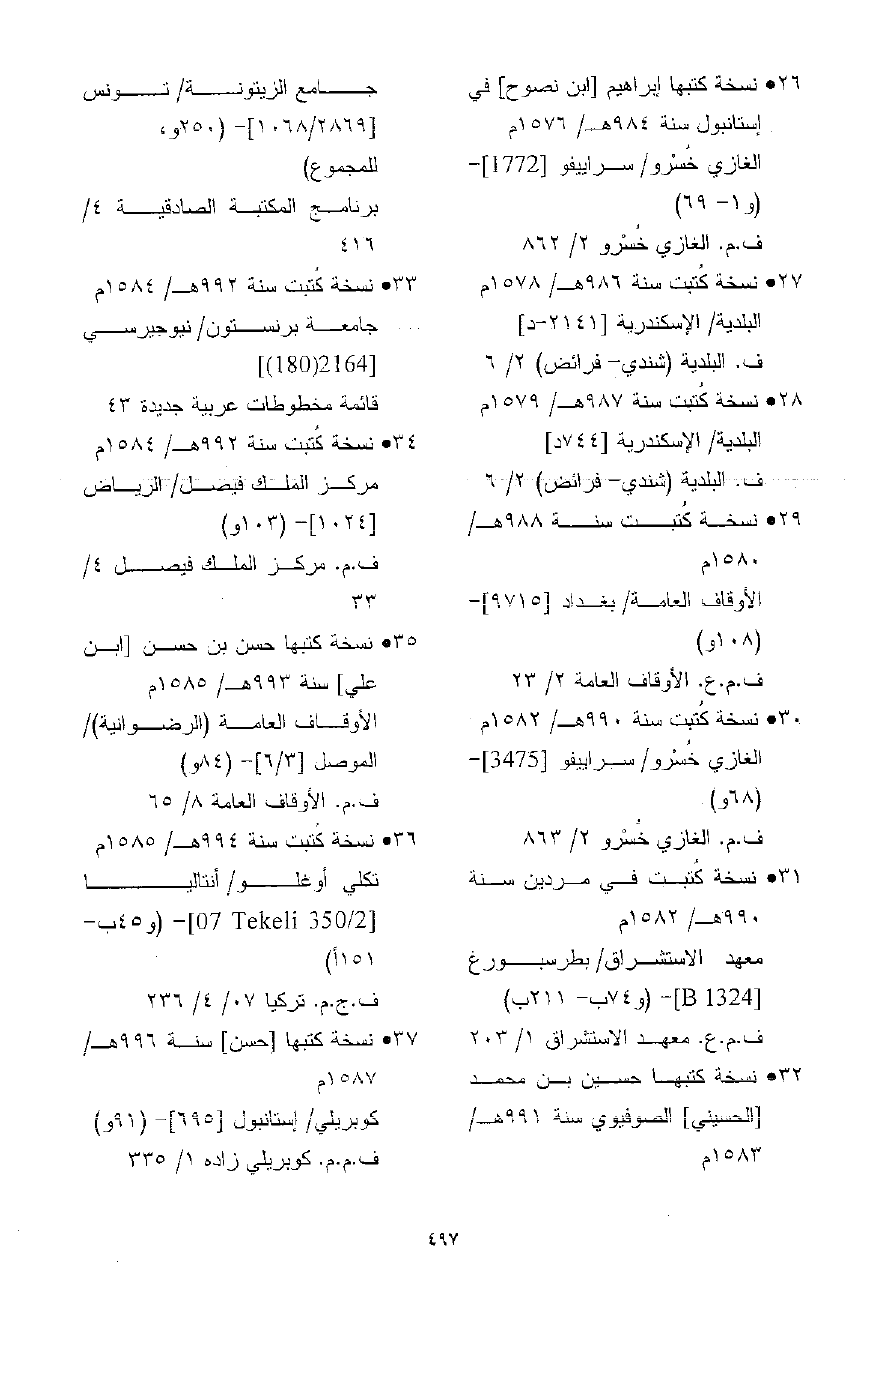 ٢٦• نسخة كتبها إبراهيم [ابن نصوح] في
إستانبول سنة ٩٨٤هـ/ ١٥٧٦م
الغازي خُسْرو/ سراييفو [1772]-
(و١- ٦٩)
ف.م. الغازي خُسْرو ٢/ ٨٦٢
٢٧• نسخة كُتبت سنة ٩٨٦هـ/ ١٥٧٨م
البلدية/ الإسكندرية [٢١٤١-د]
ف. البلدية (شندي- فرائض) ٢/ ٦
٢٨• نسخة كُتبت سنة ٩٨٧هـ/ ١٥٧٩م
البلدية/ الإسكندرية [٧٤٤د]
ف. البلدية (شندي- فرائض) ٢/ ٦
٢٩• نسخة كُتبت سنة ٩٨٨هـ/
١٥٨٠م
الأوقاف العامة/ بغداد [٩٧١٥]-
(١٠٨و)
ف.م.ع. الأوقاف العامة ٢/ ٢٣
٣٠• نسخة كُتبت سنة ٩٩٠هـ/ ١٥٨٢م
الغازي خُسْرو/ سراييفو [3475]-
(٦٨و)
ف.م. الغازي خُسْرو ٢/ ٨٦٣
٣١• نسخة كُتبت في مردين سنة
٩٩٠هـ/ ١٥٨٢م
معهد الاستشراق/ بطرسبورغ
[B 1324]- (و٧٤ب- ٢١١ب)
ف.م.ع. معهد الاستشراق ١/ ٢٠٣
٣٢• نسخة كتبها حسين بن محمد
[الحسيني] الصوفيوي سنة ٩٩١هـ/
١٥٨٣م
جامع الزيتونة/ تونس
[١٠٦٨/٢٨٦٩]- (٢٥٠و،
للمجموع)
برنامج المكتبة الصادقية ٤/
٤١٦
٣٣• نسخة كُتبت سنة ٩٩٢هـ/ ١٥٨٤م
جامعة برنستون/ نيوجيرسي
[2164(180)]
قائمة مخطوطات عربية جديدة ٤٣
٣٤• نسخة كُتبت سنة ٩٩٢هـ/ ١٥٨٤م
مركز الملك فيصل/ الرياض
[١٠٢٤]- (١٠٣و)
ف.م. مركز الملك فيصل ٤/
٣٣
٣٥• نسخة كتبها حسن بن حسن [ابن
علي] سنة ٩٩٣هـ/ ١٥٨٥م
الأوقاف العامة (الرضوانية)/
الموصل [٦/٣]- (٨٤و)
ف.م. الأوقاف العامة ٨/ ٦٥
٣٦• نسخة كُتبت سنة ٩٩٤هـ/ ١٥٨٥م
تكلي أوغلو/ أنتاليا
[07 Tekeli 350/2]- (و٤٥ب-
١٥١أ)
ف.ج.م. تركيا ٠٧/ ٤/ ٢٣٦
٣٧• نسخة كتبها [حسن] سنة ٩٩٦هـ/
١٥٨٧م
كوبريلي/ إستانبول [٦٩٥]- (٩١و)
ف.م.م. كوبريلي زاده ١/ ٣٣٥
٤٩٧